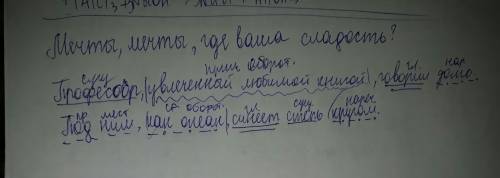 Мечты, мечты, где ваша сладость?
прич. оборот.
сущ гл. нар
Профессор, (увлеченный любимой книгой), говорил дома.
пр мест ср. оборот. гл сущ нареч
Под ним, как океан, синеет степь кругом.